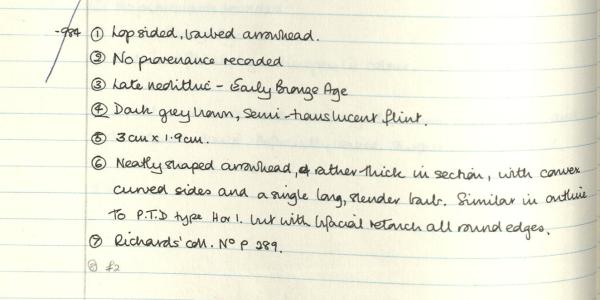 -984 ① Lopsided, barbed arrowhead.
② No provenance recorded
③ Late neolithic - Early Bronze Age
④ Dark grey brown, semi-translucent flint.
⑤ 3cm x 1.9cm.
⑥ Neatly shaped arrowhead, rather thick in section, with convex
curved sides and a single long, slender barb. Similar in outline
To P.T.D type H or I. but with bifacial retouch all round edges.
⑦ Richards' coll. Nº P 289.
⑧ £2